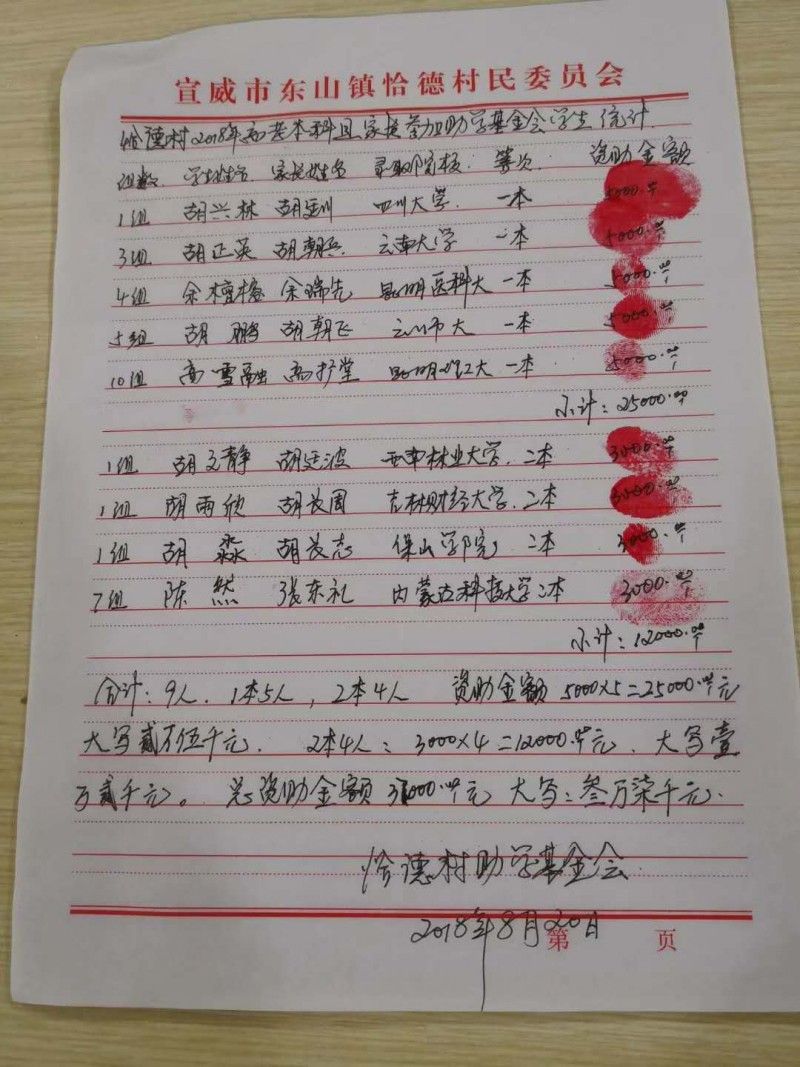 宣威市东山镇恰德村民委员会
恰德村2018年高考本科且家长参加助学基金会学生统计
组数 学生姓名 家长姓名 录取院校 等次 资助金额
1组 胡兴林 胡 四川大学 一本 5000.00
3组 胡正英 胡朝兵 云南大学 一本 5000.00
4组 余檀梅 余瑞先 昆明医科大 一本 5000.00
5组 胡鹏 胡朝飞 云师大 一本 5000.00
10组 高雪融 高护堂 昆明理工大 一本 5000.00
小计:25000.00
1组 胡文静 胡廷波 西南林业大学 二本 3000.00
1组 胡雨欣 胡长周 吉林财经大学 二本 3000.00
1组 胡淼 胡长志 保山学院 二本 3000.00
7组 陈然 张东礼 内蒙古科技大学 二本 3000.00
小计:12000.00
合计:9人.1本5人,2本4人 资助金额 5000×5=25000.00元
大写贰万伍千元.2本4人:3000×4=12000.00元.大写壹
万贰千元。总资助金额37000.00元 大写:叁万柒千元.
恰德村助学基金会
2018年8月20日
第 页